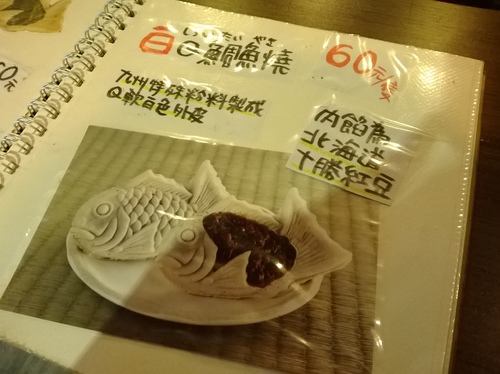 白Q鯛魚燒
60元/隻
九州特殊粉料製成
Q軟白色外皮
內餡為
北海道
十勝紅豆